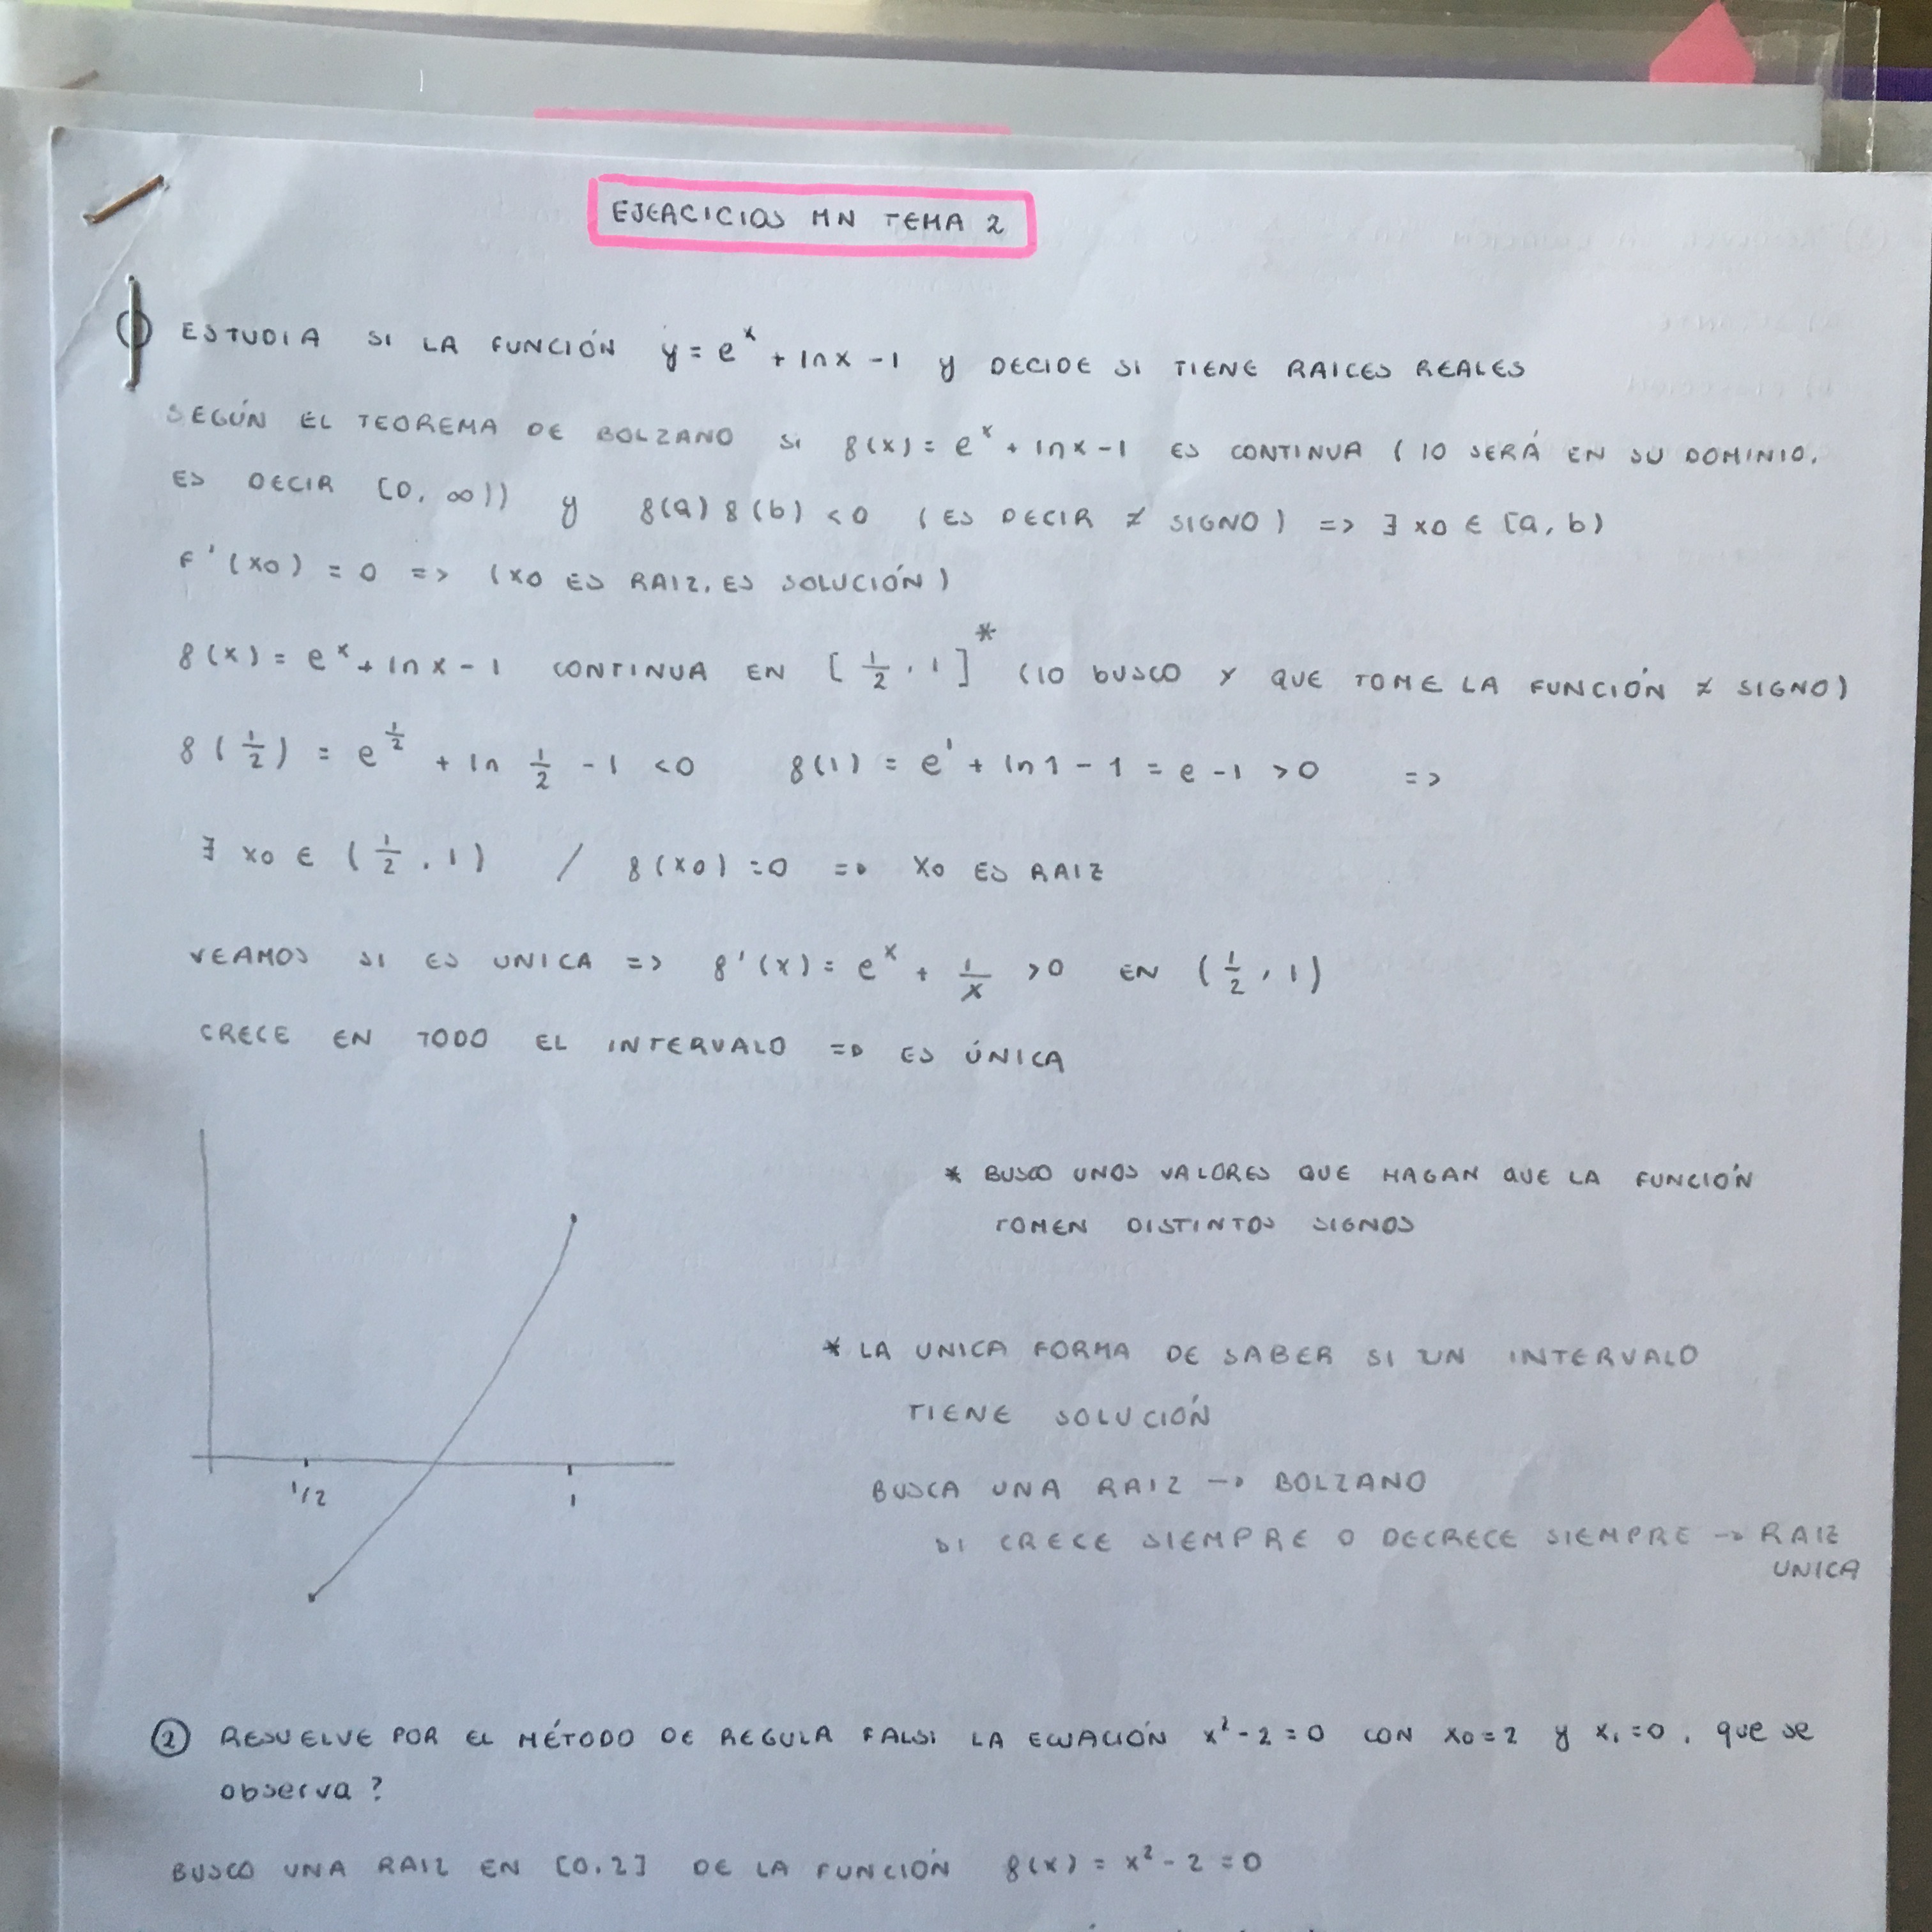 EJERCICIOS MN TEMA 2
① ESTUDIA SI LA FUNCIÓN y = e^x + ln x - 1 y DECIDE SI TIENE RAICES REALES
SEGÚN EL TEOREMA DE BOLZANO SI f(x) = e^x + ln x - 1 ES CONTINUA (lO SERÁ EN SU DOMINIO,
ES DECIR [0, ∞)) y f(a) f(b) < 0 (ES DECIR ≠ SIGNO) => ∃ x0 ∈ [a, b)
F'(x0) = 0 => (x0 ES RAIZ, ES SOLUCIÓN)
f(x) = e^x + ln x - 1 CONTINUA EN [1/2, 1]* (lO bUSCO Y QUE TOME LA FUNCIÓN ≠ SIGNO)
f(1/2) = e^1/2 + ln 1/2 - 1 < 0 f(1) = e^1 + ln 1 - 1 = e - 1 > 0 =>
∃ x0 ∈ (1/2, 1) / f(x0) = 0 => x0 ES RAIZ
VEAMOS SI ES UNICA => f'(x) = e^x + 1/x > 0 EN (1/2, 1)
CRECE EN TODO EL INTERVALO => ES ÚNICA
* BUSCO UNOS VALORES QUE HAGAN QUE LA FUNCIÓN
TOMEN DISTINTOS SIGNOS
* LA UNICA FORMA DE SABER SI UN INTERVALO
TIENE SOLUCIÓN
BUSCA UNA RAIZ → BOLZANO
SI CRECE SIEMPRE O DECRECE SIEMPRE → RAIZ
UNICA
1/2 1
② RESUELVE POR EL MÉTODO DE REGULA FALSI LA ECUACIÓN x² - 2 = 0 CON x0 = 2 y x1 = 0, que se
observa?
BUSCO UNA RAIZ EN [0,2] DE LA FUNCIÓN f(x) = x² - 2 = 0